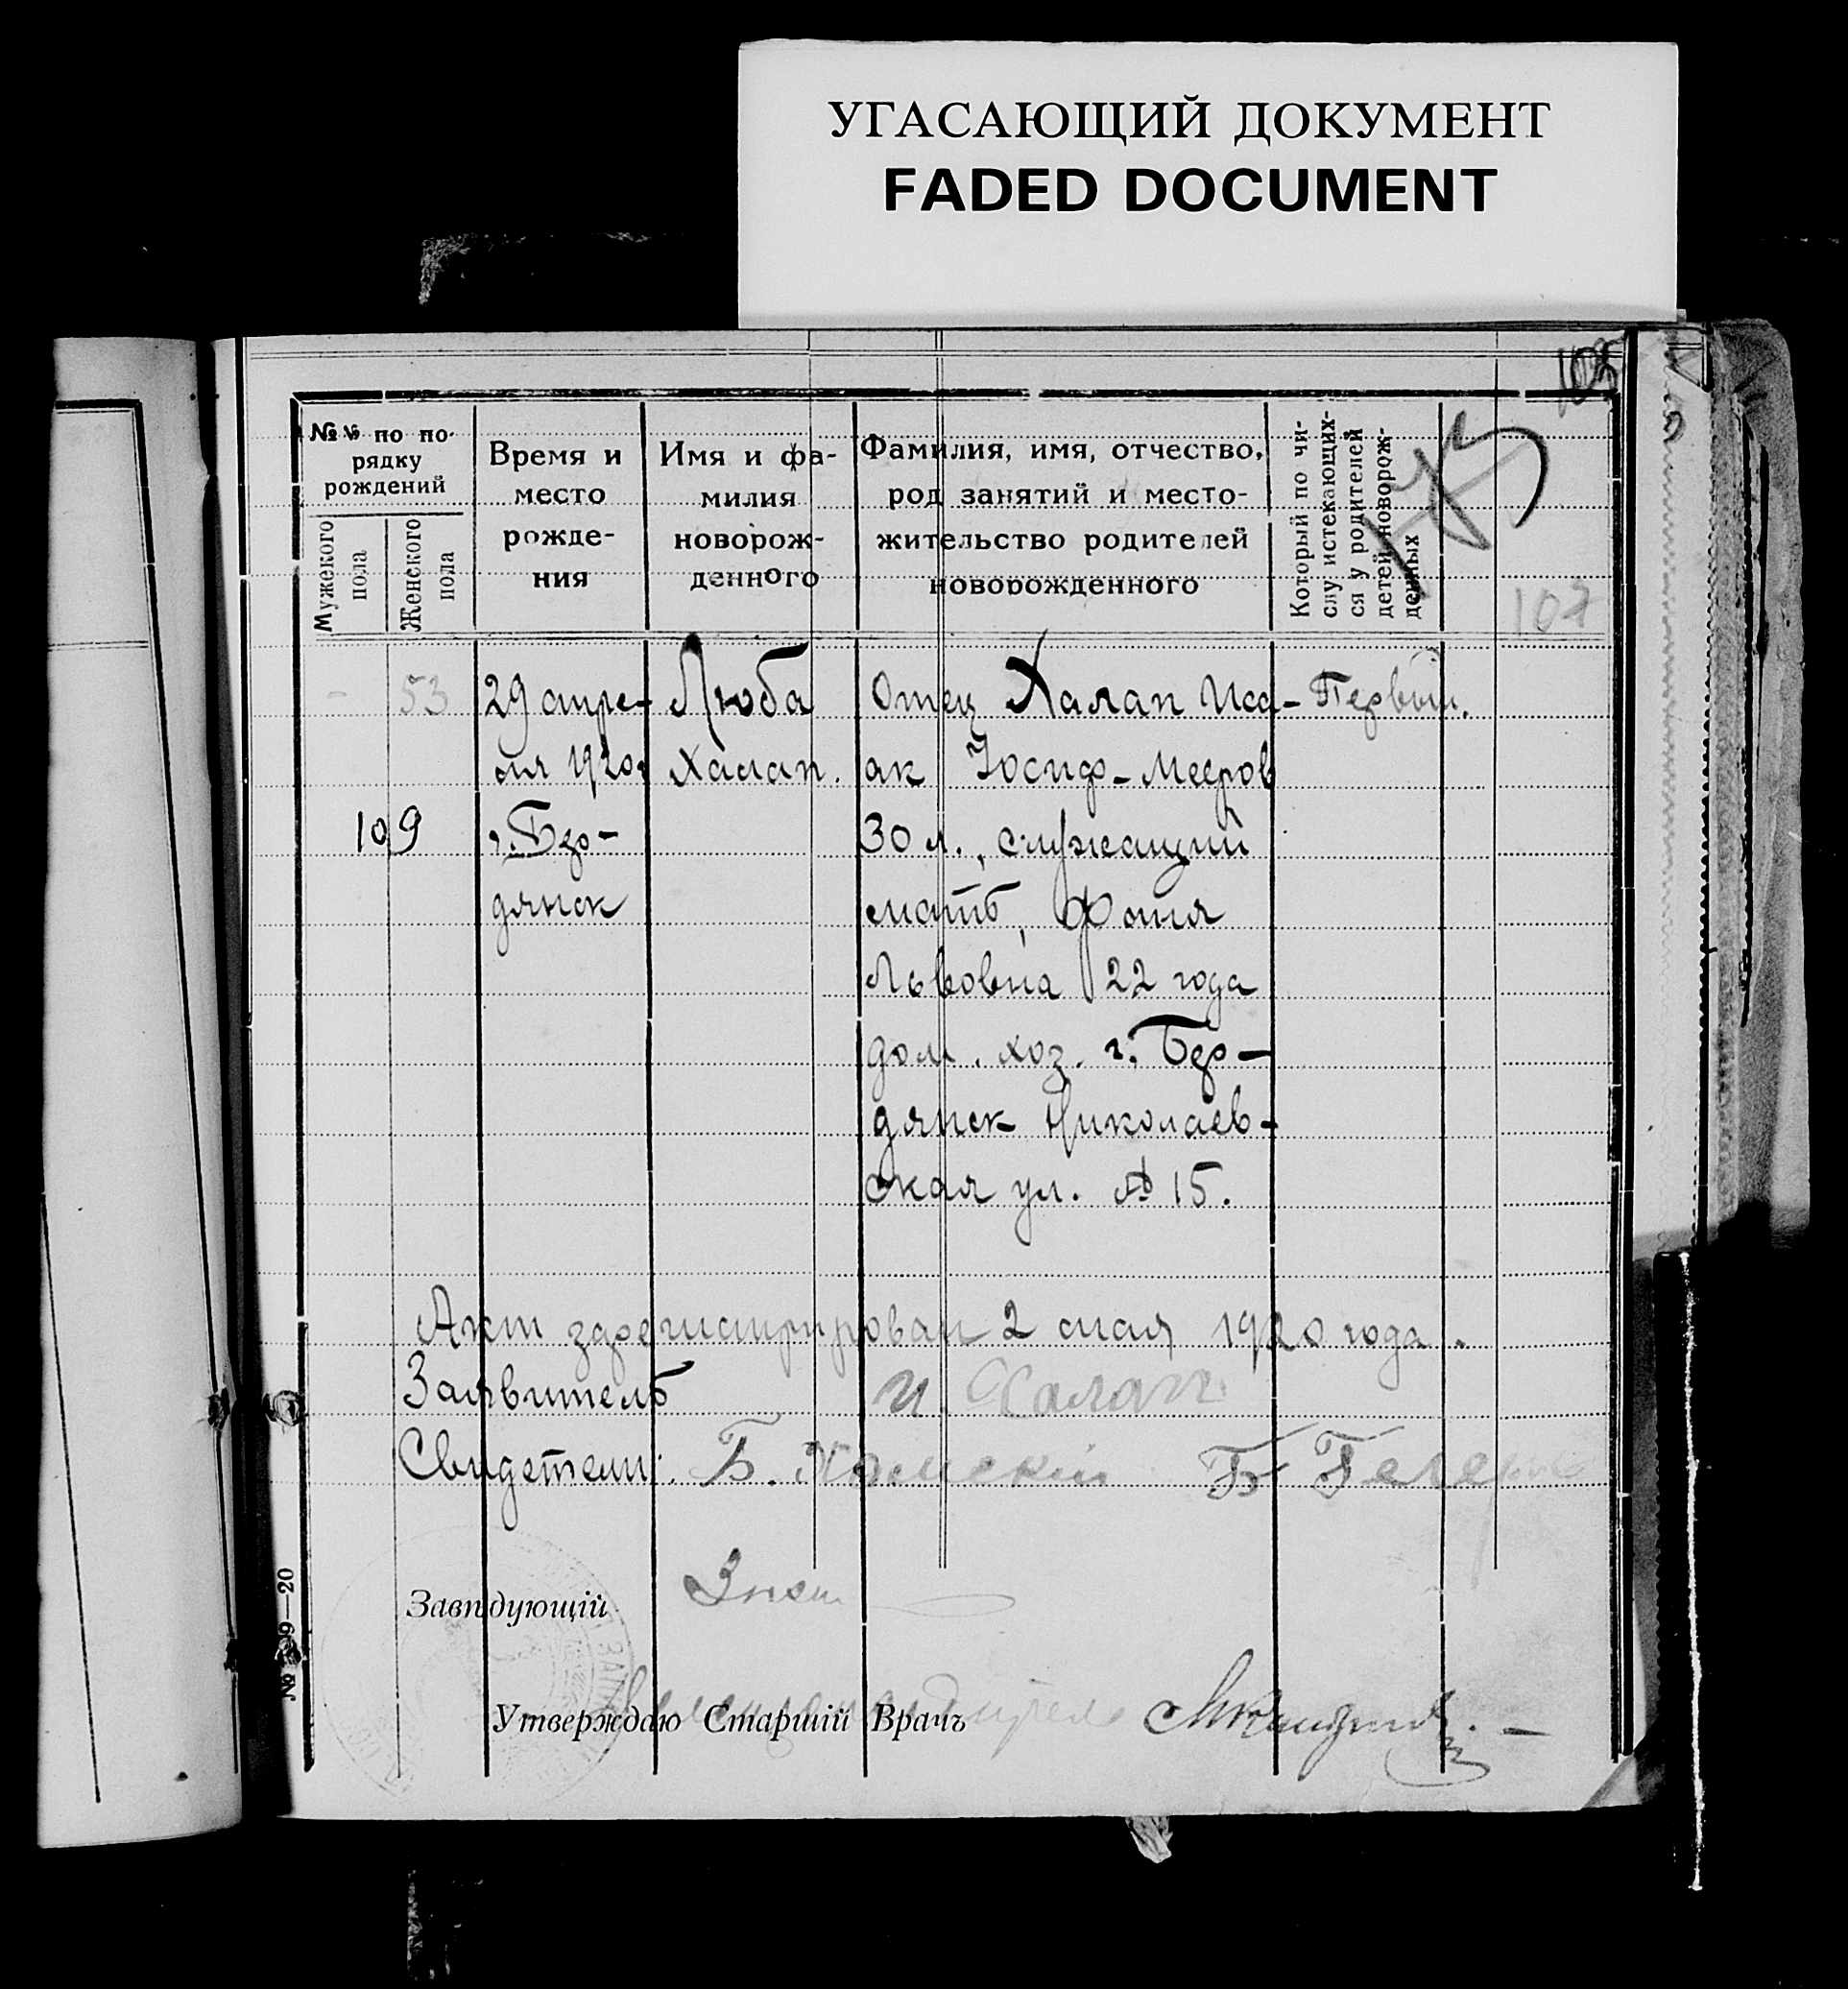 УГАСАЮЩИЙ ДОКУМЕНТ
FADED DOCUMENT
№№ по порядку рождений
Мужекого пола
Женского пола
Время и место рождения
Имя и фамилия новорожденного
Фамилия, имя, отчество, род занятий и местожительство родителей новорожденного
Который по числу истекающихся у родителей детей новорожденных
107
- 53
109
29 апре-
ля 1920 г
г. Бер-
дянск
Люба
Халап.
Отец Халап Иса-
ак Іосиф-Мееров
30 л., служащий
мать, Фаня
Львовна 22 года
дом. хоз. г. Бер-
дянск Николаев-
ская ул. № 15.
Первый.
Акт зарегистрирован 2 мая 1920 года.
Заявитель И Халап
Свидетели: Б. Б
Завѣдующій
Утверждаю Старшій Врачъ